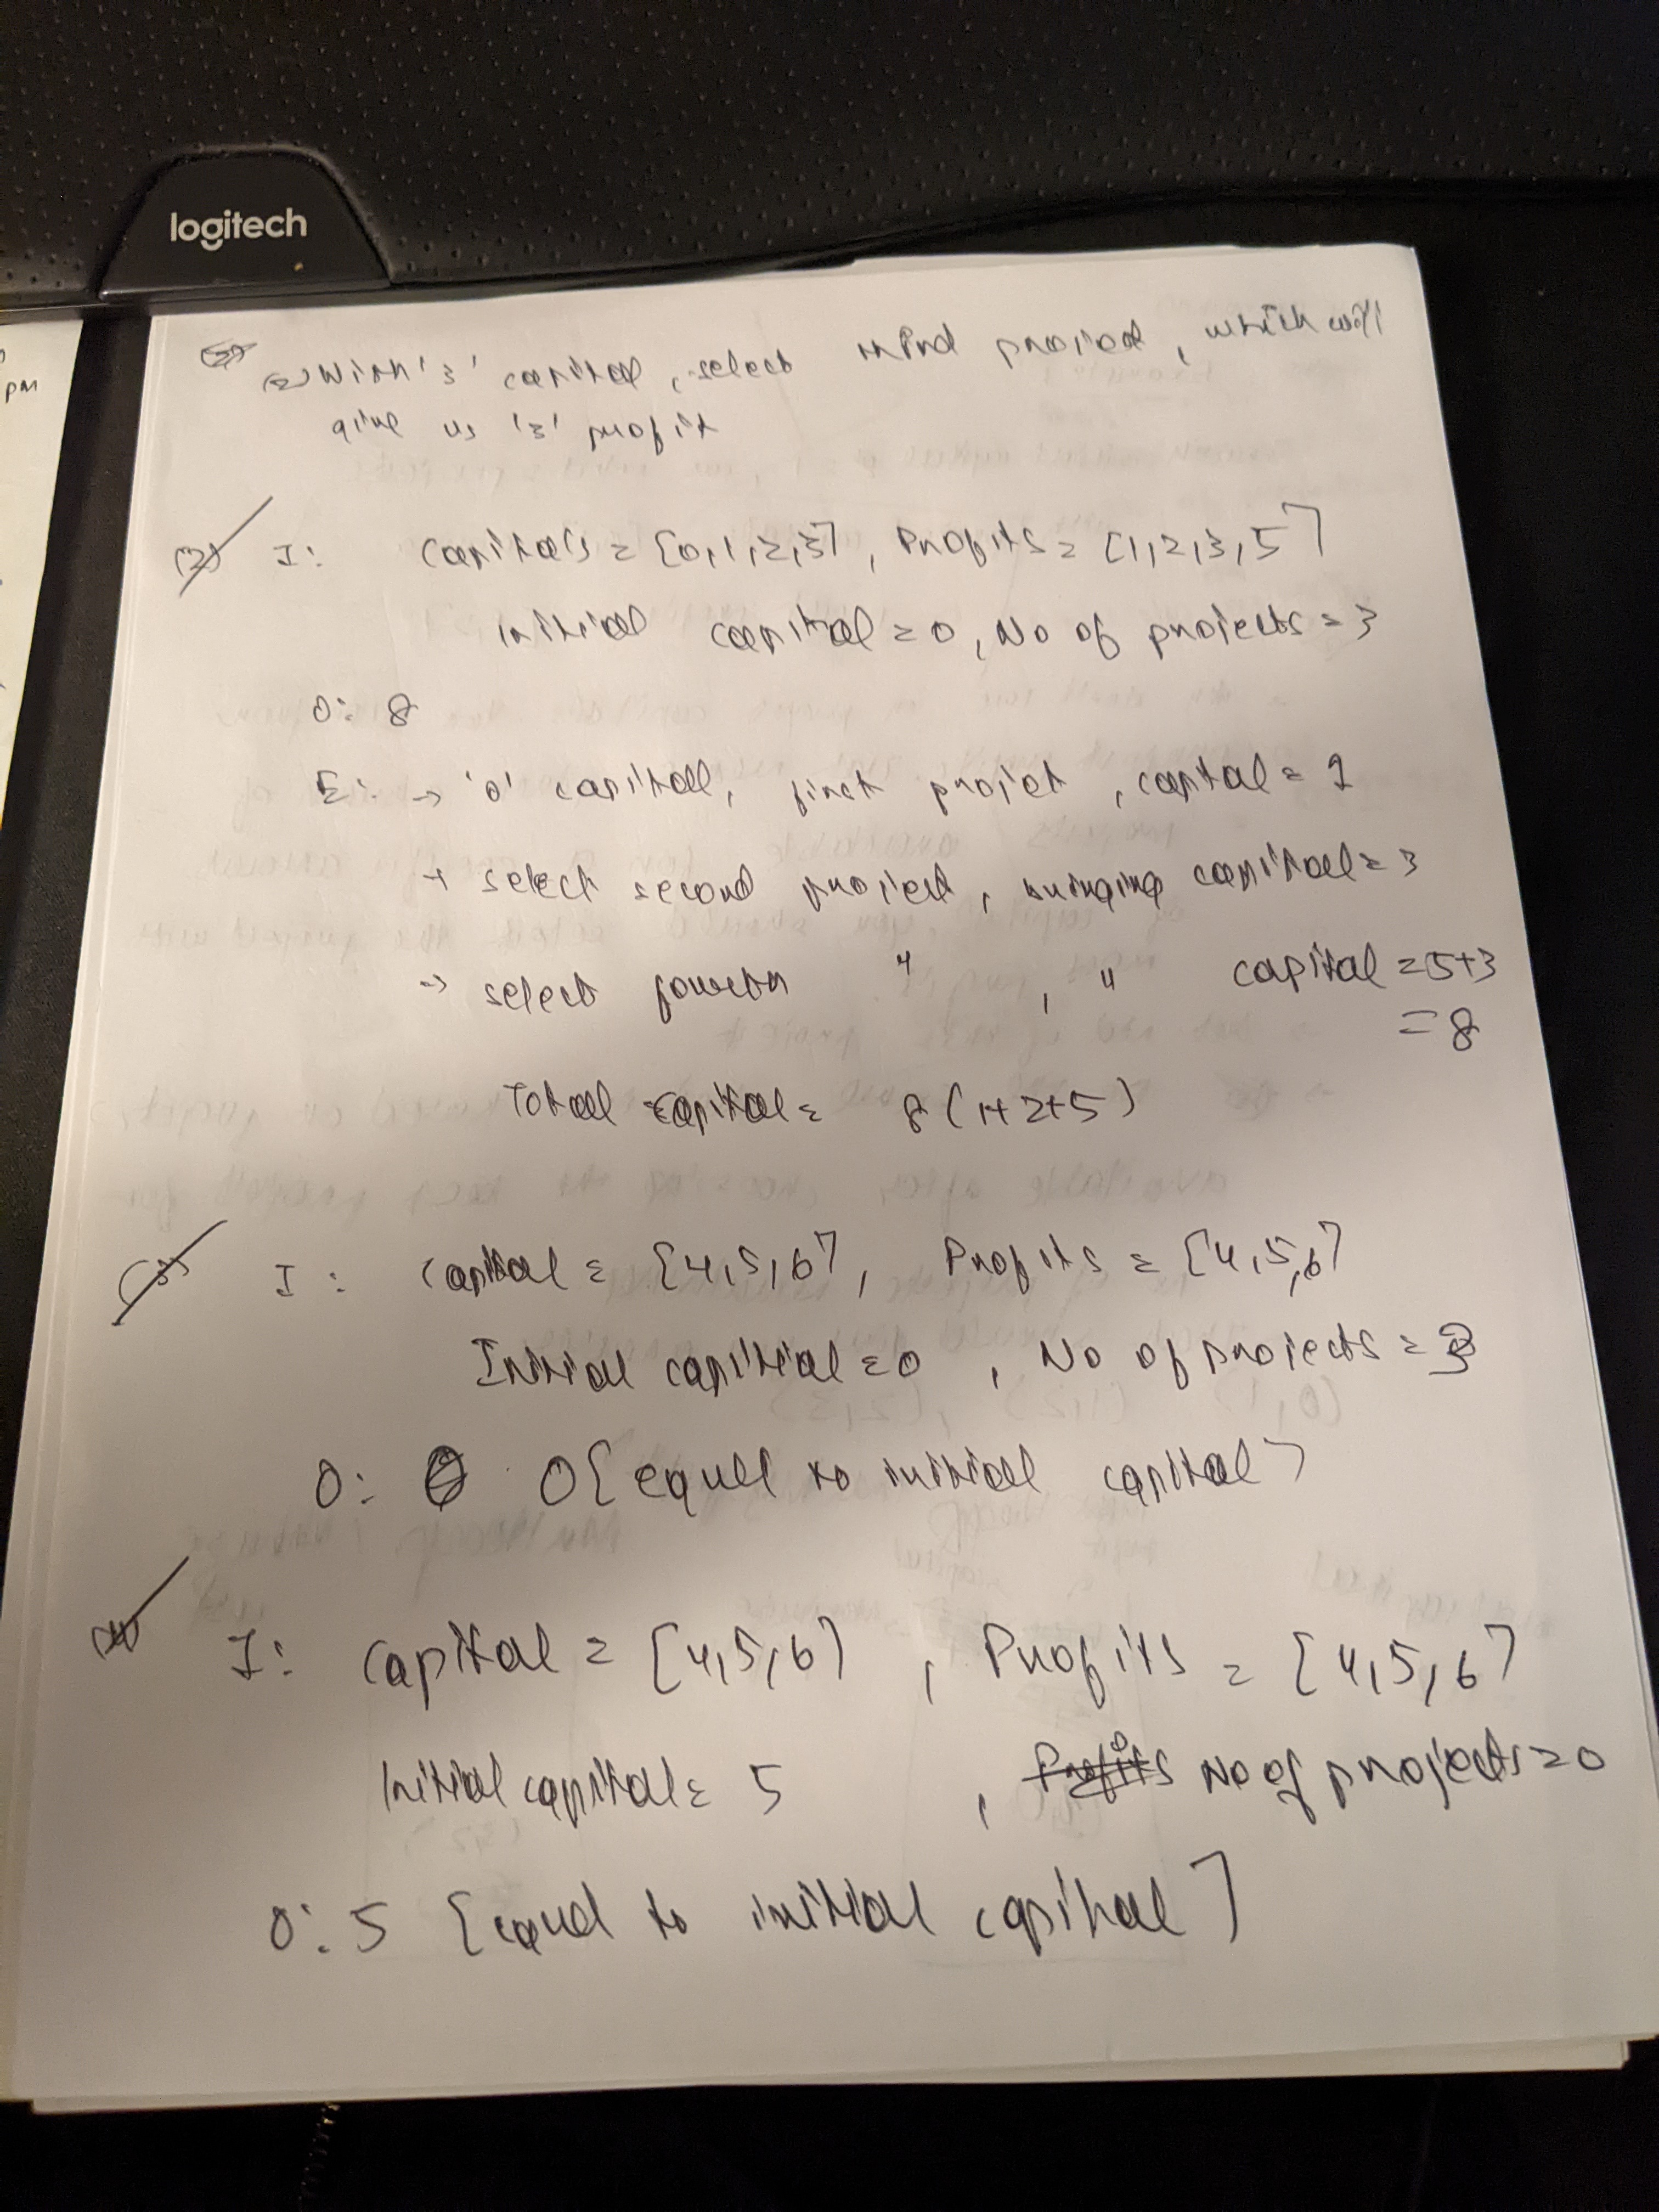 logitech
pm
(2) With '3' capital, select third project, which will
give us '3' profit
(2) I: Capitals = [0,1,2,3], Profits = [1,2,3,5]
initial capital = 0, No of projects = 3
O: 8
E: → '0' capital, first projet, capital = 1
→ select second project, bringing capital = 3
→ select fourth " , " capital = 5+3
= 8
Total capital = 8 (1+2+5)
(3) I: Capital = [4,5,6], Profits = [4,5,6]
Initial capital = 0, No of projects = 3
O: 0 [equal to initial capital]
(4) I: Capital = [4,5,6], Profits = [4,5,6]
Initial capital = 5, Profits No of projects = 0
O: 5 [equal to initial capital]